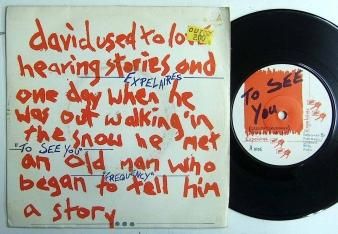 david used to love
OUT OF
200
hearing stories and
EXPELAIRES
one day when he
was out walking in
the snow he met
"TO SEE YOU"
an old man who
"FREQUENCY"
began to tell him
a story...
TO SEE
YOU
A side